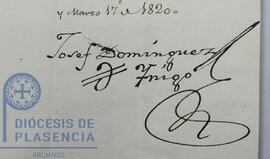 y Marzo 17 de 1820=
Josef Dominguez
Yñigo
DIÓCESIS DE
PLASENCIA
ARCHIVOS